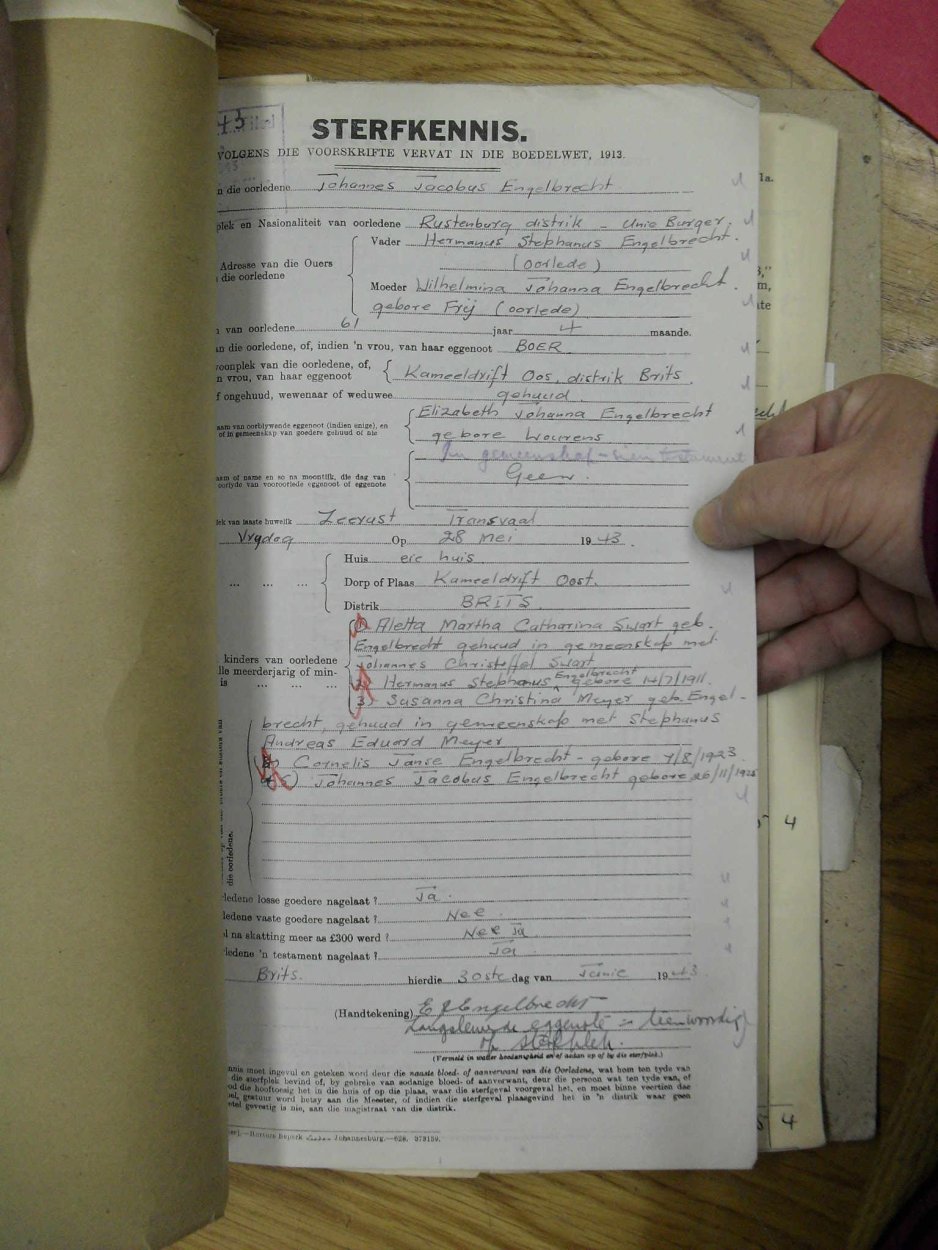 STERFKENNIS.
VOLGENS DIE VOORSKRIFTE VERVAT IN DIE BOEDELWET, 1913.
die oorledene Johannes Jacobus Engelbrecht
plek en Nasionaliteit van oorledene Rustenburg distrik - Unie Burger.
Vader Hermanus Stephanus Engelbrecht.
Adresse van die Ouers
die oorledene
(oorlede)
Moeder Wilhelmina Johanna Engelbrecht.
gebore Frÿ (oorlede)
van oorledene 61 jaar 4 maande.
an die oorledene, of, indien 'n vrou, van haar eggenoot BOER
woonplek van die oorledene, of,
n vrou, van haar eggenoot Kameeldrift Oos, distrik Brits.
f ongehuud, wewenaar of weduwee gehuud.
aam van oorblywende eggenoot (indien enige), en
of in gemeenskap van goedere gehuud of nie
Elizabeth Johanna Engelbrecht
gebore Lourens
In gemeenskap - sien testament
aam of name en so na moontlik, die dag van
oorlyde van vooroorlede eggenoot of eggenote
Geen.
lek van laaste huwelik Zeerust Transvaal
Vrydag Op 28 Mei 1943.
Huis eie huis
Dorp of Plaas Kameeldrift Oost.
Distrik BRITS.
1) Aletta Martha Catharina Swart geb.
Engelbrecht gehuud in gemeenskap met
kinders van oorledene
lle meerderjarig of min-
is
Johannes Christoffel Swart
2) Hermanus Stephanus Engelbrecht gebore 14/7/1911.
3) Susanna Christina Meyer geb. Engel-
brecht, gehuud in gemeenskap met Stephanus
Andreas Eduard Meyer
Cornelis Janse Engelbrecht - gebore 7/8/1923.
5) Johannes Jacobus Engelbrecht gebore 26/11/1925
die oorledene.
ledene losse goedere nagelaat? Ja.
ledene vaste goedere nagelaat? Nee.
l na skatting meer as £300 werd? Nee Ja
ledene 'n testament nagelaat? Ja
Brits. hierdie 30ste dag van Junie 1943
(Handtekening) E J Engelbrecht
Langslewende eggenote - teenwoordig
op sterfplek.
(Vermeld in watter hoedanigheid en of aldan op of by die sterfplek.)
nnis moet ingevul en geteken word deur die naaste bloed- of aanverwant van die Oorledene, wat hom ten tyde van
die sterfplek bevind of, by gebreke van sodanige bloed- of aanverwant, deur die persoon wat ten tyde van, of
die hooftoesig het in die huis of op die plaas, waar die sterfgeval voorgeval het, en moet binne veertien dae
gestuur word hetsy aan die Meester, of indien die sterfgeval plaasgevind het in 'n distrik waar geen
gevestig is nie, aan die magistraat van die distrik.
Hortors Beperk Johannesburg.—628, 379159.
4
4